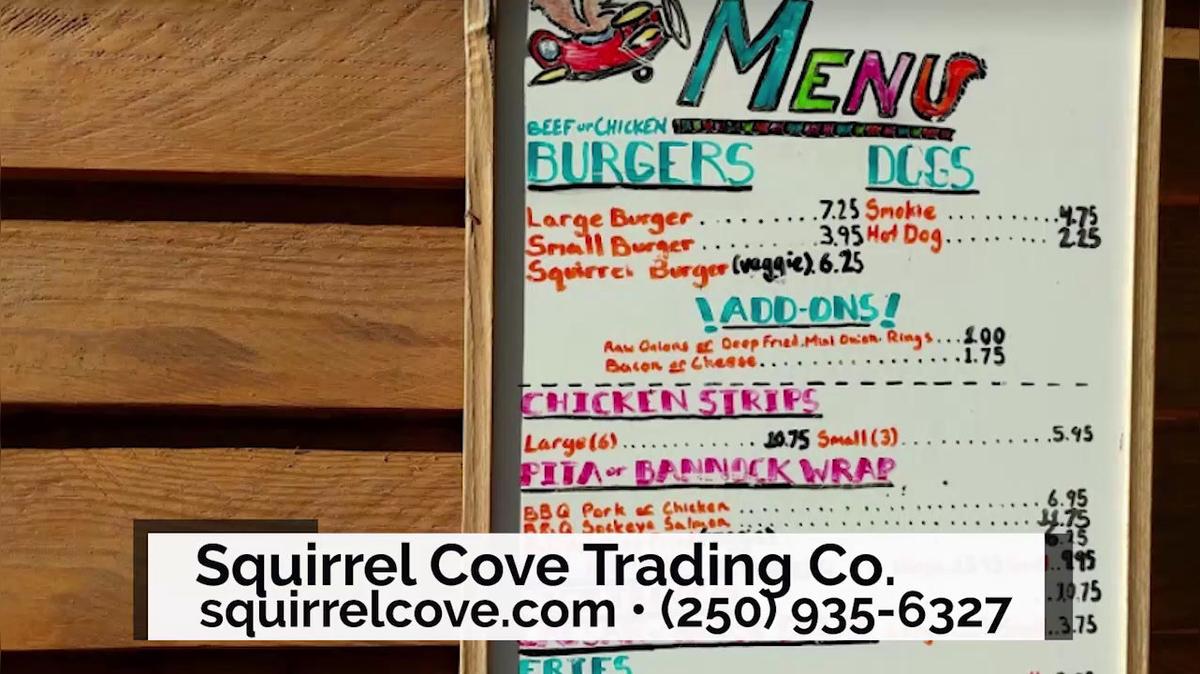 MENU
BEEF or CHICKEN
BURGERS DOGS
Large Burger .......... 7.25 Smokie .......... 4.75
Small Burger .......... 3.95 Hot Dog .......... 2.25
Squirrel Burger (vaggie). 6.25
! ADD-ONS !
Raw Onions or Deep Fried Mini Onion Rings ... 1.00
Bacon or Cheese .......... 1.75
CHICKEN STRIPS
Large (6) .......... 10.75 Small (3) .......... 5.95
PITA or BANNOCK WRAP
BBQ Pork or Chicken .......... 6.95
BBQ Sockeye Salmon .......... 11.75
6.25
Squirrel Cove Trading Co.
9.95
squirrelcove.com • (250) 935-6327
10.75
3.75
FRIES